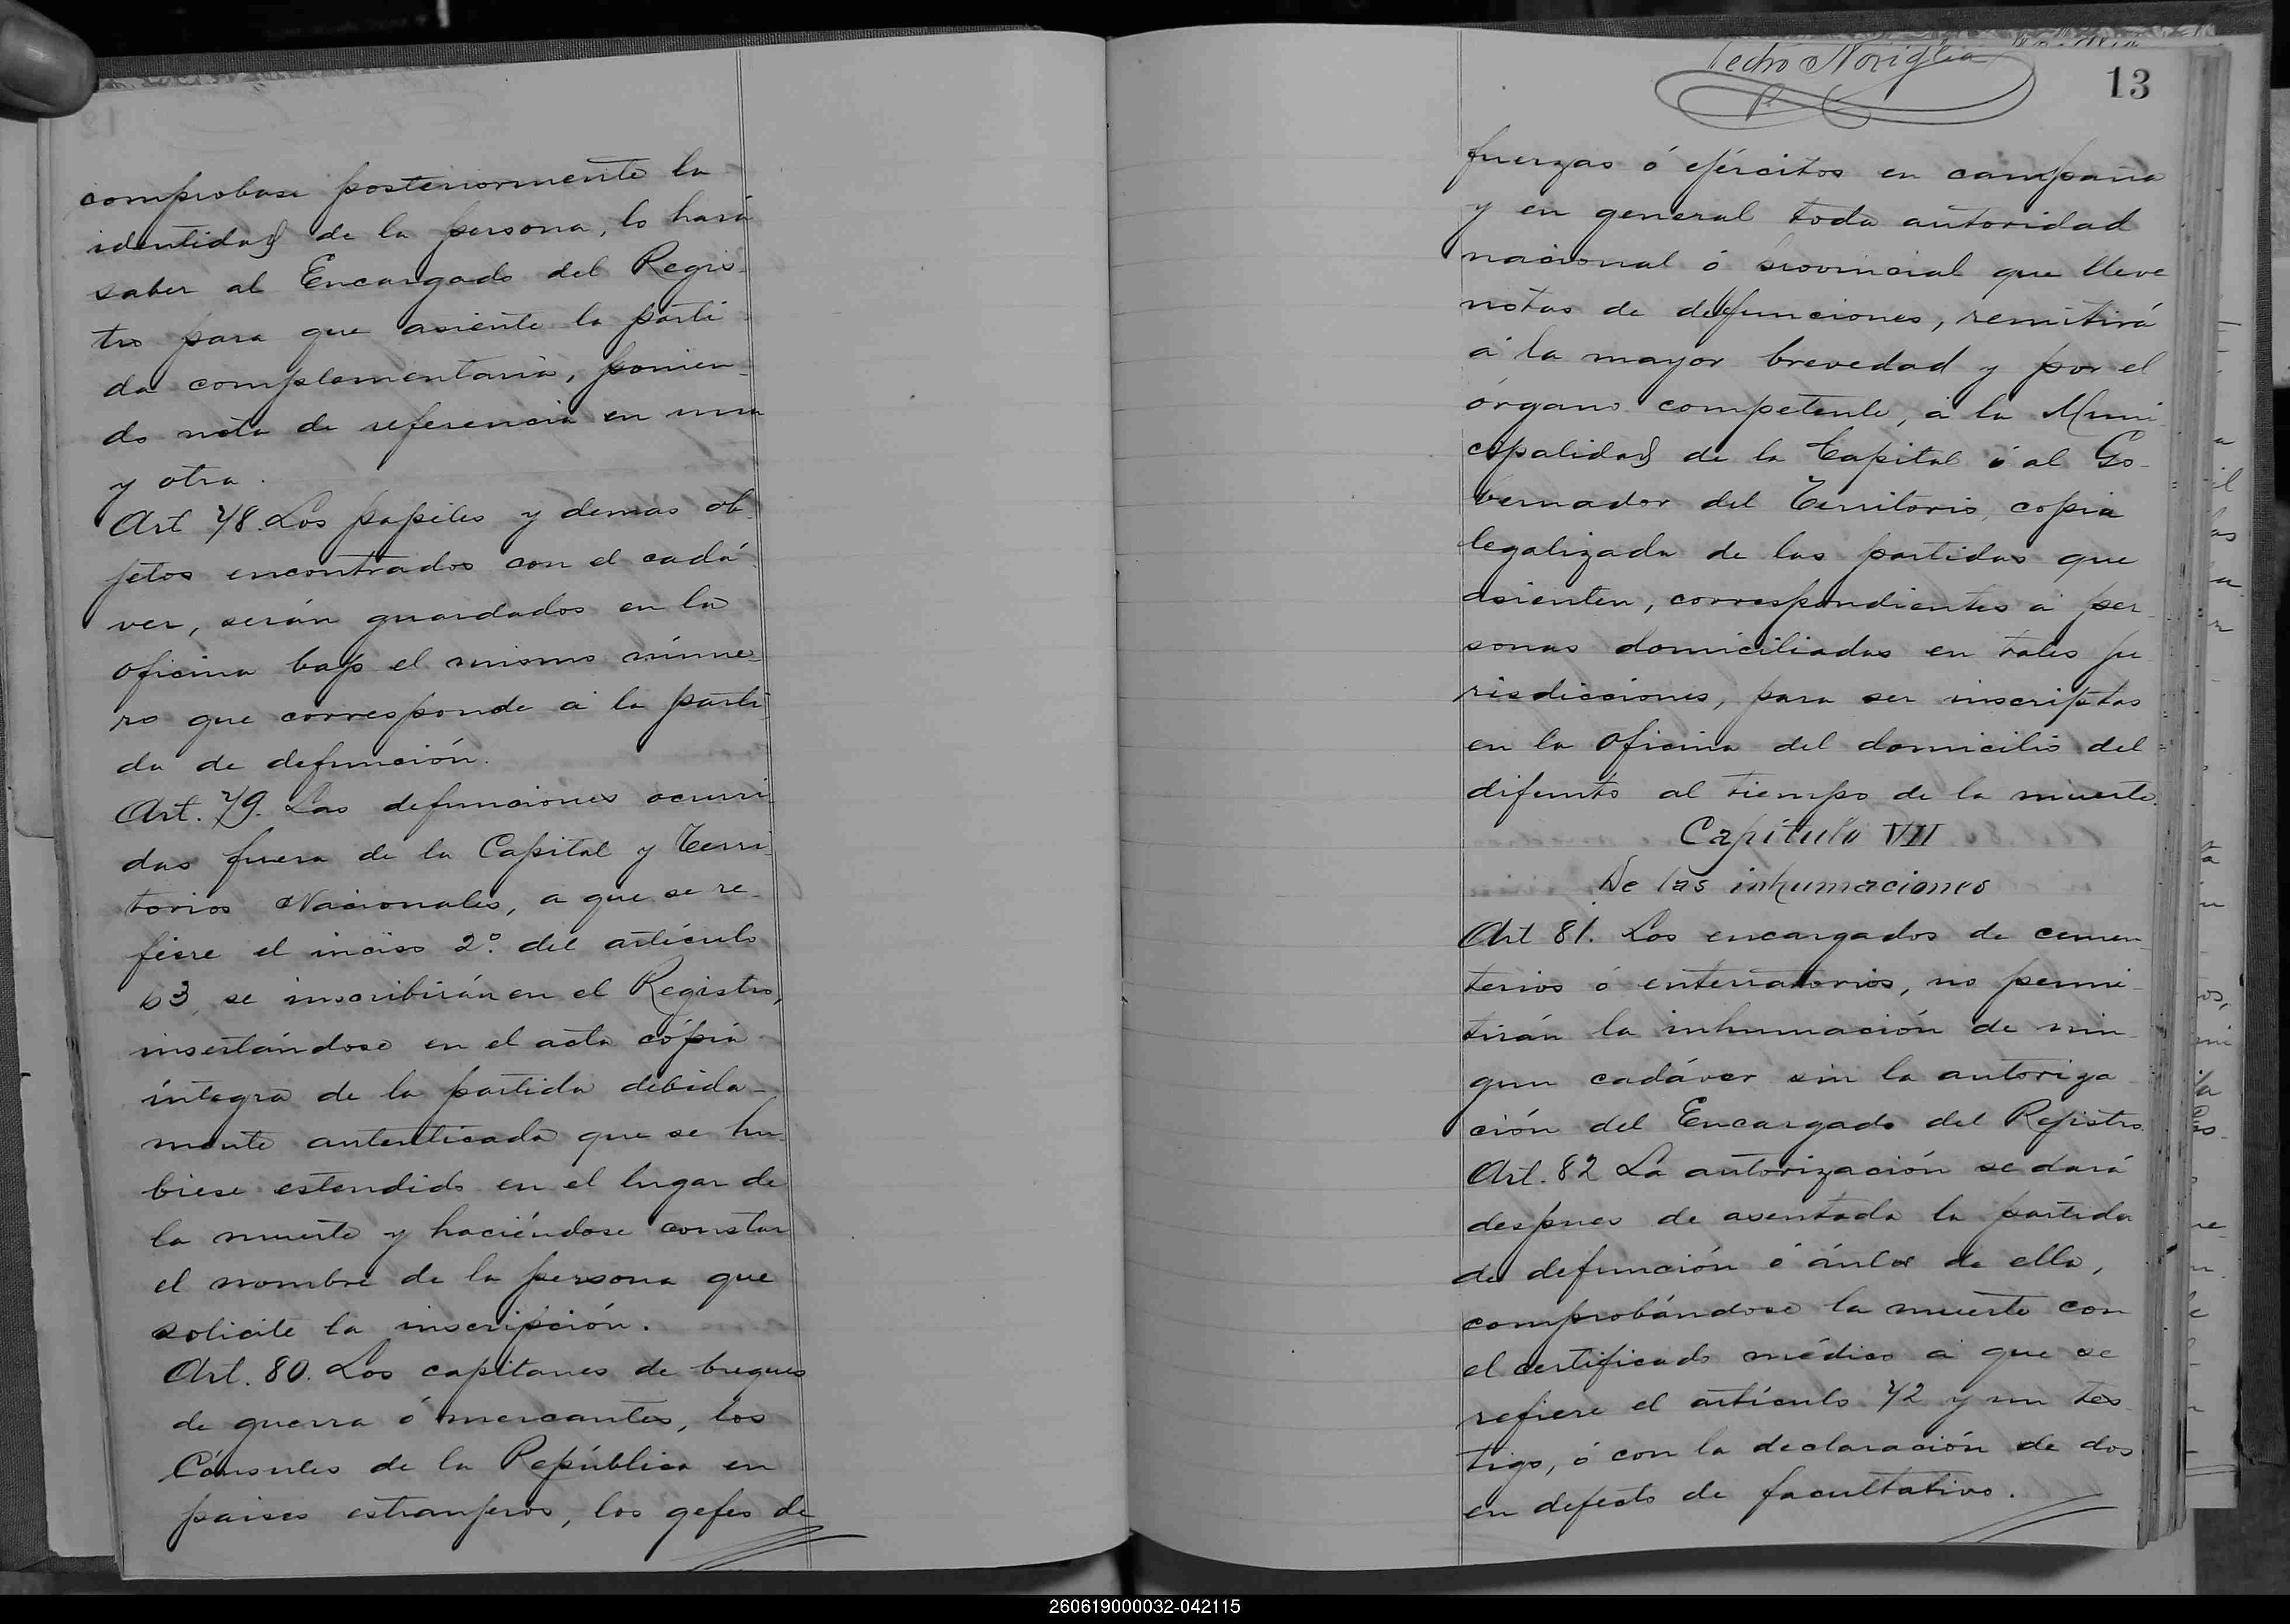 comprobase posteriormente la
identidad de la persona, lo hará
saber al Encargado del Regis-
tro para que asiente la parti-
da complementaria, ponien-
do nota de referencia en una
y otra.
Art 78. Los papeles y demas ob-
jetos encontrados con el cadá-
ver, serán guardados en la
oficina bajo el mismo núme-
ro que corresponde á la parti-
da de defunción.
Art. 79. Las defunciones ocurri-
das fuera de la Capital y Terri-
torios Nacionales, a que se re-
fiere el inciso 2º. del artículo
63, se inscribirán en el Registro,
insertándose en el acta cópia
íntegra de la partida debida-
mente autenticada que se hu-
biese estendido en el lugar de
la muerte y haciéndose constar
el nombre de la persona que
solicite la inscripción.
Art. 80. Los capitanes de buques
de guerra ó mercantes, los
Cónsules de la República en
paises estranjeros, los gefes de
Pedro Noriglia
13
fuerzas ó ejércitos en campaña
y en general toda autoridad
nacional ó provincial que lleve
notas de defunciones, remitirá
á la mayor brevedad y por el
órgano competente, á la Muni-
cipalidad de la Capital ó al Go-
bernador del Territorio, copia
legalizada de las partidas que
asienten, correspondientes á per-
sonas domiciliadas en tales ju-
risdicciones, para ser inscriptas
en la oficina del domicilio del
difunto al tiempo de la muerte.
Capítulo VII
De las inhumaciones
Art 81. Los encargados de cemen-
terios ó enterratorios, no permi-
tirán la inhumación de nin-
gun cadáver sin la autoriza-
ción del Encargado del Registro
Art. 82 La autorización se dará
despues de asentada la partida
de defunción ó ántes de ella,
comprobándose la muerte con
el certificado médico á que se
refiere el artículo 72 y un tes-
tigo, ó con la declaración de dos
en defecto de facultativo.
260619000032-042115